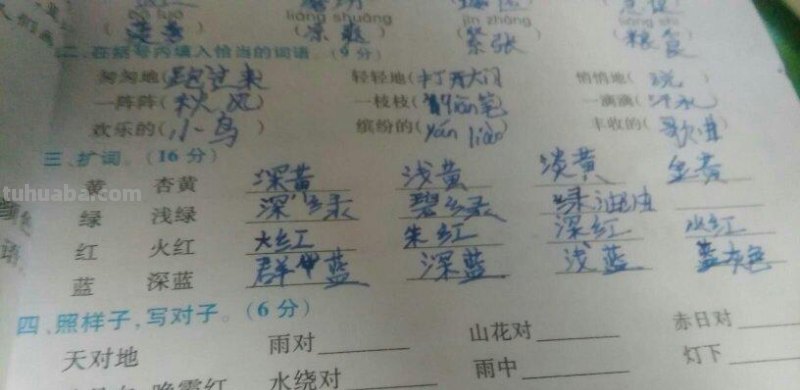 liáng shuǎng jǐn zhāng liáng shi
(凉爽) (紧张) (粮食)
二、在括号内填入恰当的词语。(9分)
匆匆地(跑过来) 轻轻地(打开大门) 悄悄地(说)
一阵阵(秋风) 一枝枝(铅笔) 一滴滴(汗水)
欢乐的(小鸟) 缤纷的(yán liào) 丰收的(歌谣)
三、扩词。(16分)
黄 杏黄 深黄 浅黄 淡黄 金黄
绿 浅绿 深绿 碧绿 绿油油
红 火红 大红 朱红 深红 水红
蓝 深蓝 群青蓝 深蓝 浅蓝 蓝灰色
四、照样子,写对子。(6分)
天对地 雨对 山花对 赤日对
水绕对 雨中 灯下
tuhuaba.com